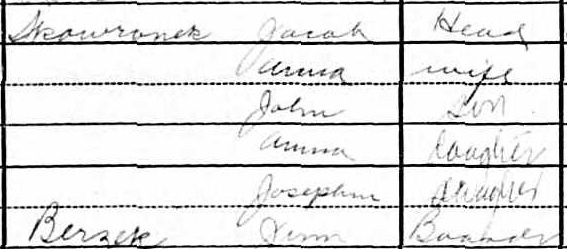 Skowronek Jacob Head
Anna wife
John son
Anna daughter
Josephin daughter
Berzek Boarder